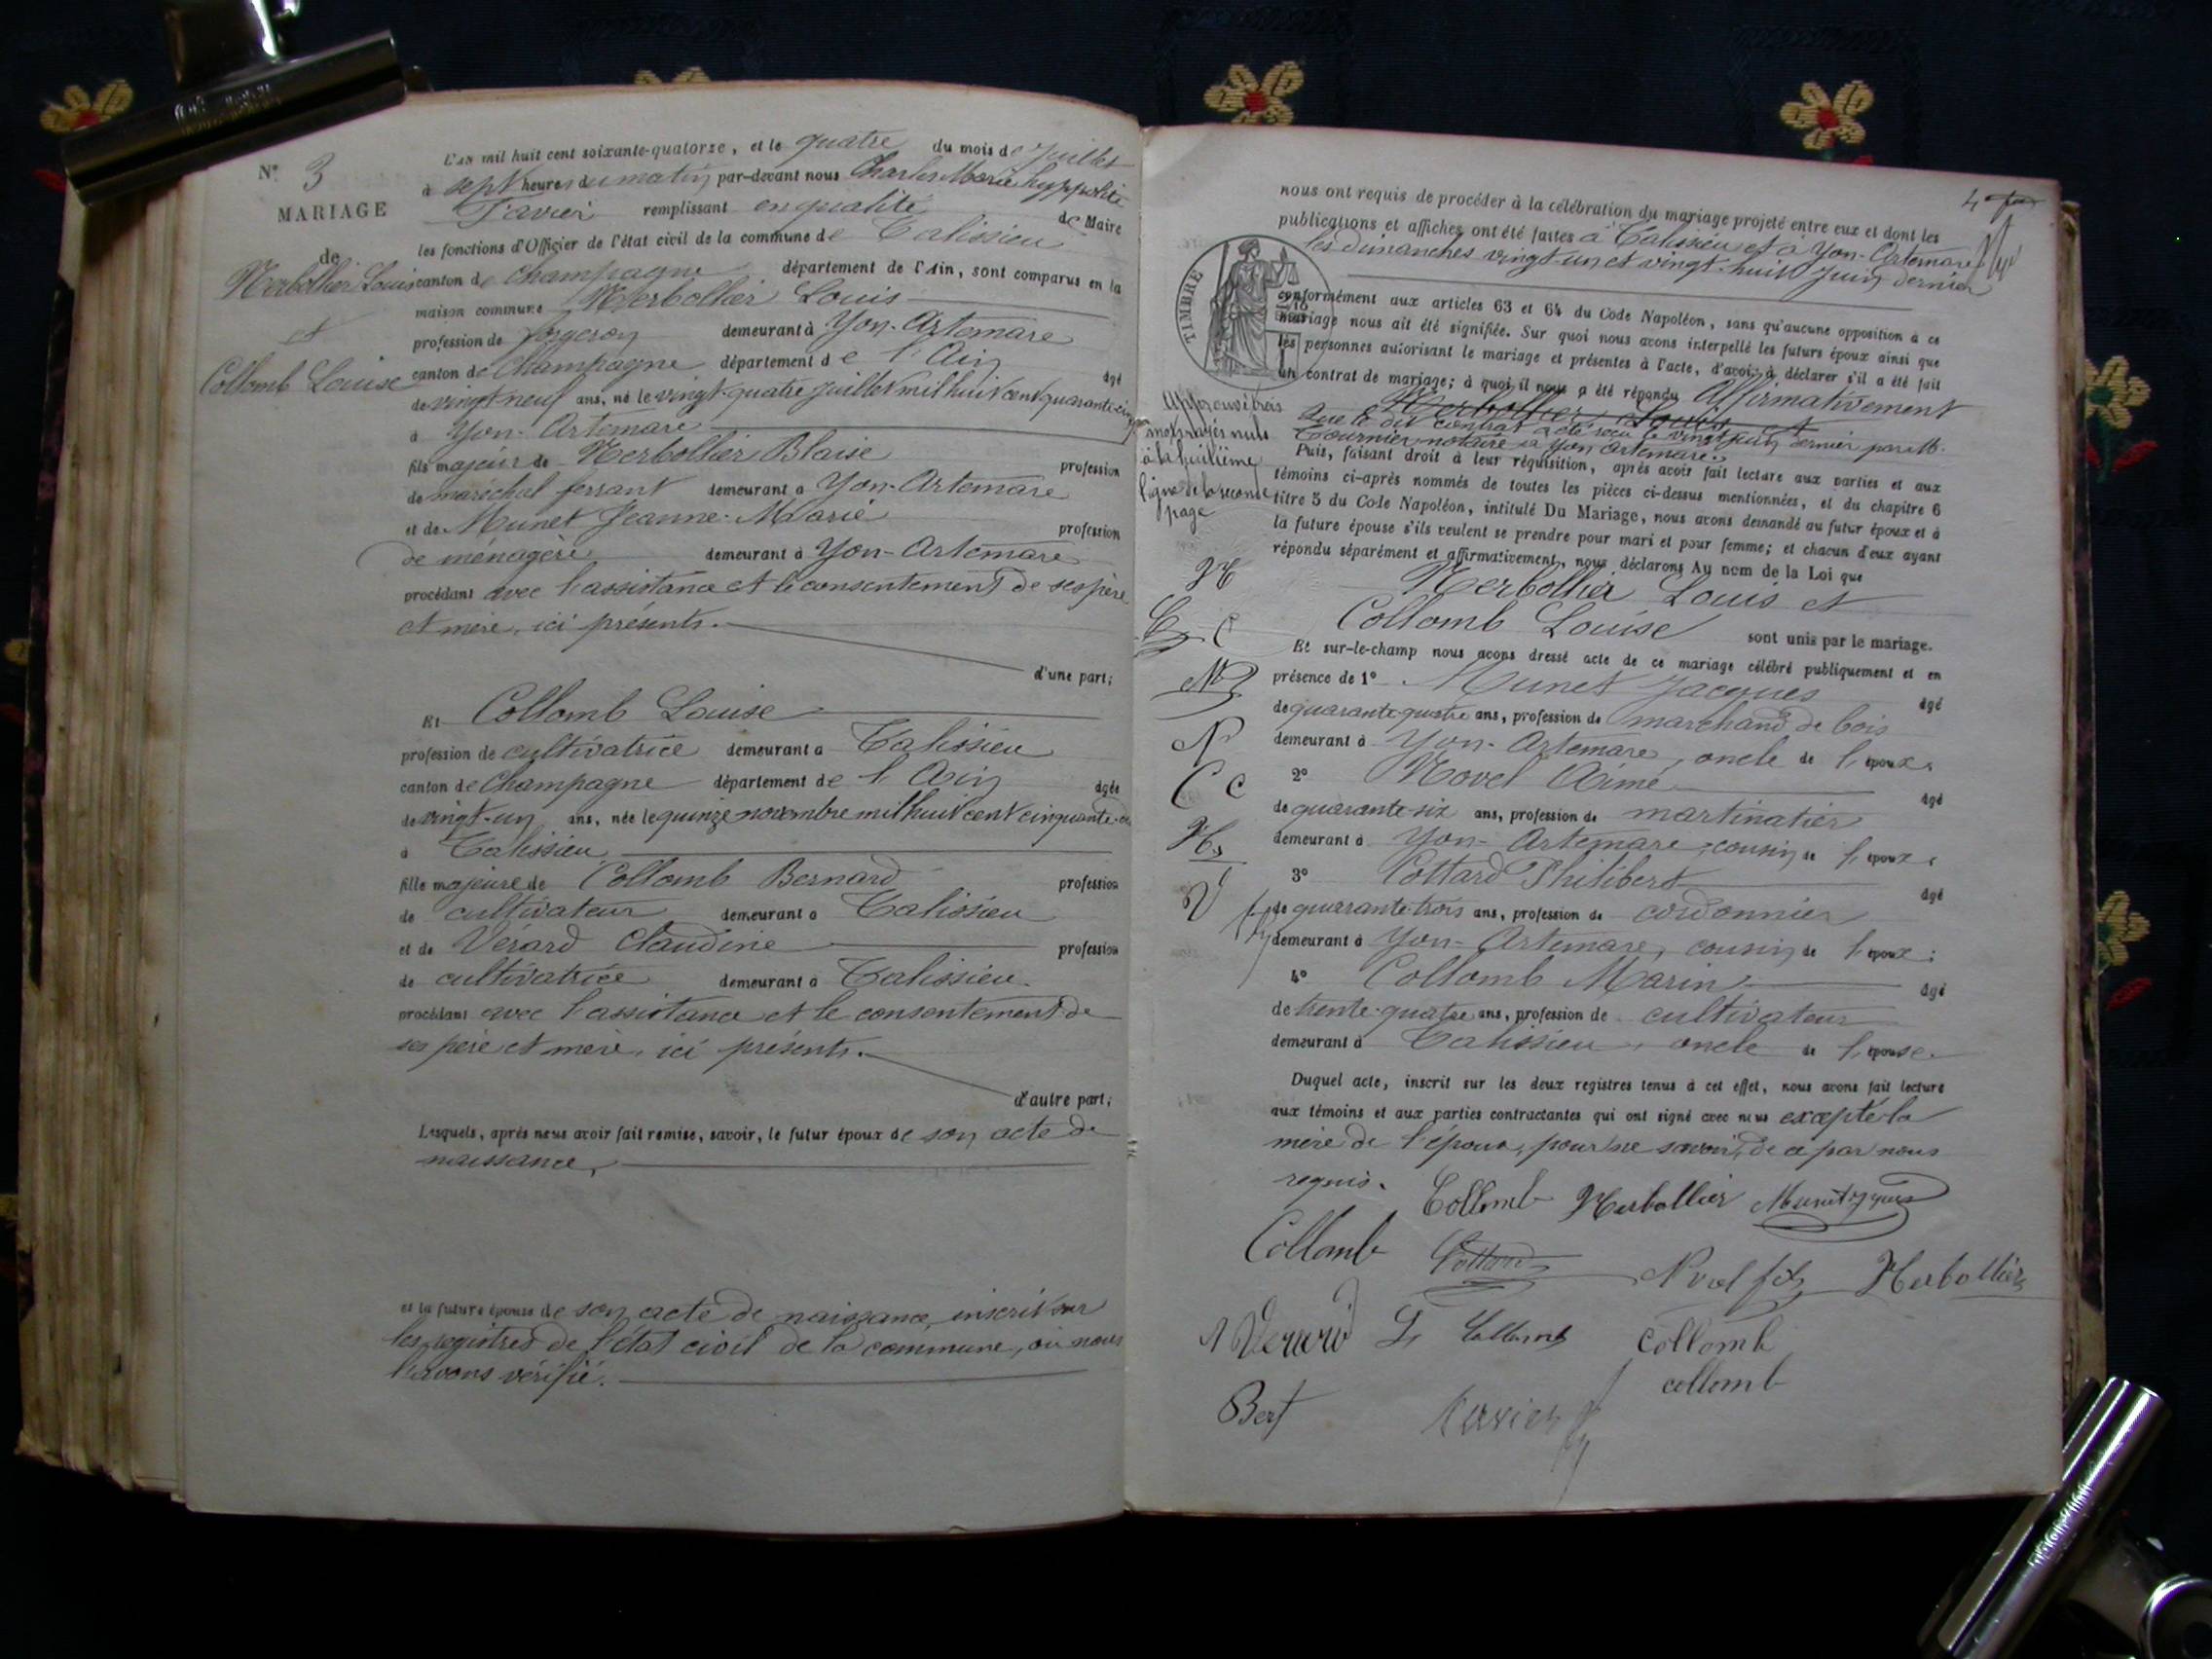 N° 3
MARIAGE
de
Herbollier Louis
et
Collomb Louise
L'an mil huit cent soixante-quatorze, et le quatre du mois de Juillet
à sept heures du matin par-devant nous Charles Marie hyppolite
Tavier remplissant en qualité de Maire
les fonctions d'Officier de l'état civil de la commune de Talissieu
canton de Champagne département de l'Ain, sont comparus en la
maison commune Herbollier Louis
profession de forgeron demeurant à Yon-Artemare
canton de Champagne département de l'Ain âgé
de vingt neuf ans, né le vingt-quatre juillet mil huit cent quarante-cinq
à Yon-Artemare
fils majeur de Herbollier Blaise profession
de maréchal ferrant demeurant à Yon-Artemare
et de Munet Jeanne-Marie profession
de ménagère demeurant à Yon-Artemare
procédant avec l'assistance et le consentement de ses père
et mère, ici présents.
d'une part;
Et Collomb Louise
profession de cultivatrice demeurant à Talissieu
canton de Champagne département de l'Ain âgée
de vingt-un ans, née le quinze novembre mil huit cent cinquante-
à Talissieu
fille majeure de Collomb Bernard profession
de cultivateur demeurant à Talissieu
et de Vérard Claudine profession
de cultivatrice demeurant à Talissieu
procédant avec l'assistance et le consentement de
ses père et mère, ici présents.
d'autre part;
Lesquels, après nous avoir fait remise, savoir, le futur époux de son acte de
naissance,
et la future épouse de son acte de naissance, inscrit sur
les registres de l'état civil de la commune, où nous
l'avons vérifié.
4
nous ont requis de procéder à la célébration du mariage projeté entre eux et dont les
publications et affiches ont été faites à Talissieu et à Yon-Artemare
les dimanches vingt-un et vingt-huit Juin dernier
TIMBRE
conformément aux articles 63 et 64 du Code Napoléon, sans qu'aucune opposition à ce
mariage nous ait été signifiée. Sur quoi nous avons interpellé les futurs époux ainsi que
les personnes autorisant le mariage et présentes à l'acte, d'avoir à déclarer s'il a été fait
un contrat de mariage; à quoi il nous a été répondu Affirmativement
Herbollier Louis et
Que le dit contrat a été reçu le vingt juin dernier par M.
Tournier notaire à Yon Artemare.
Approuvé trois
mots rayés nuls
à la huitième
ligne de la seconde
page
Puis, faisant droit à leur réquisition, après avoir fait lecture aux parties et aux
témoins ci-après nommés de toutes les pièces ci-dessus mentionnées, et du chapitre 6
titre 5 du Code Napoléon, intitulé Du Mariage, nous avons demandé au futur époux et à
la future épouse s'ils veulent se prendre pour mari et pour femme; et chacun d'eux ayant
répondu séparément et affirmativement, nous déclarons Au nom de la Loi que
Herbollier Louis et
Collomb Louise sont unis par le mariage.
Et sur-le-champ nous avons dressé acte de ce mariage célébré publiquement et en
présence de 1° Munet Jacques âgé
de quarante-quatre ans, profession de marchand de bois
demeurant à Yon-Artemare, oncle de l'époux,
2° Novel Aimé âgé
de quarante-six ans, profession de martinatier
demeurant à Yon-Artemare, cousin de l'époux,
3° Cottard Philibert âgé
de quarante-trois ans, profession de cordonnier
demeurant à Yon-Artemare, cousin de l'époux;
4° Collomb Marin âgé
de trente-quatre ans, profession de cultivateur
demeurant à Talissieu, oncle de l'épouse.
Duquel acte, inscrit sur les deux registres tenus à cet effet, nous avons fait lecture
aux témoins et aux parties contractantes qui ont signé avec nous excepté la
mère de l'époux, pour ne savoir, de ce par nous
requis.
Collomb Herbollier Munet Jques
Collomb Cottard Novel fils Herbollier
Verard Collomb collomb
collomb
Bert Tavier